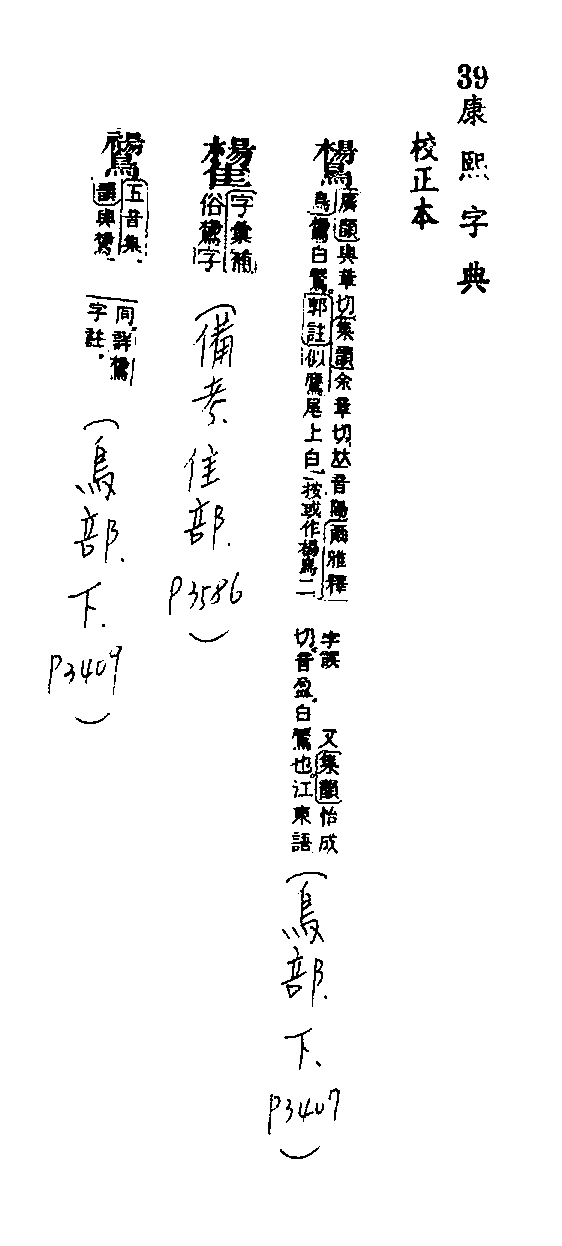 39康熙字典
校正本
鸉
廣韻與章切集韻余章切𠀤音陽爾雅釋
鳥鸉白鷢。郭註似鷹尾上白。按或作楊鳥二
字誤　又集韻怡成
切。音盈。白鷢也。江東語
(鳥部.下.P3407)
字彙補
俗鸉字
(備考隹部.P3586)
五音集
韻與鸉
同。詳鸉
字註。
(鳥部.下.P3409)